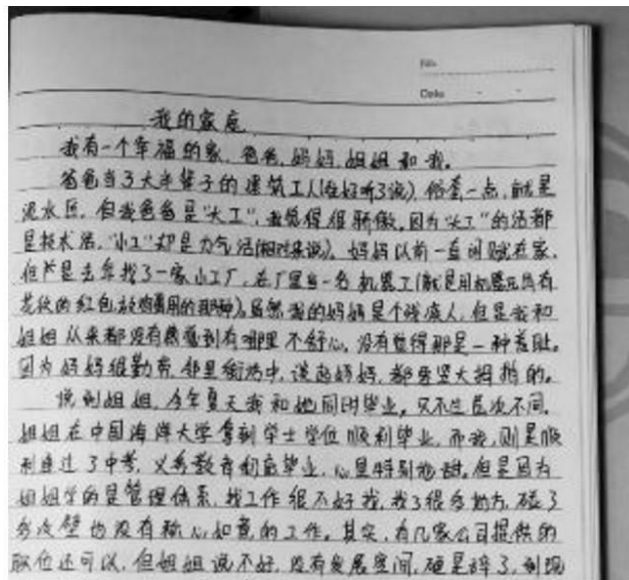 No.
Date
我的家庭
我有一个幸福的家,爸爸,妈妈,姐姐和我。
爸爸当了大半辈子的建筑工人(往好听了说),俗套一点,就是
泥水匠,但我爸爸是“大工”,我觉得很骄傲,因为“大工”的活都
是技术活,“小工”却是力气活(相对来说)。妈妈以前一直闲赋在家,
但是去年找了一家小工厂,在厂里当一名机器工(就是用机器压具有
花纹的红包,放购费用的那种),虽然我的妈妈是个残疾人,但是我和
姐姐从来都没有感觉到有哪里不舒心,没有觉得那是一种羞耻。
因为妈妈很勤劳,邻里街坊中,谈起妈妈,都要竖大拇指的。
说到姐姐,今年夏天我和她同时毕业,只不过层次不同。
姐姐在中国海洋大学拿到学士学位顺利毕业,而我,则是顺
利通过了中考,义务教育初底毕业,心里特别地甜。但是因为
姐姐学的是管理体系,找工作很不好找,找了很多地方,碰了
多次壁也没有称心如意的工作。其实,有几家公司提供的
职位还可以,但姐姐说不好,没有发展空间,硬是辞了,到现